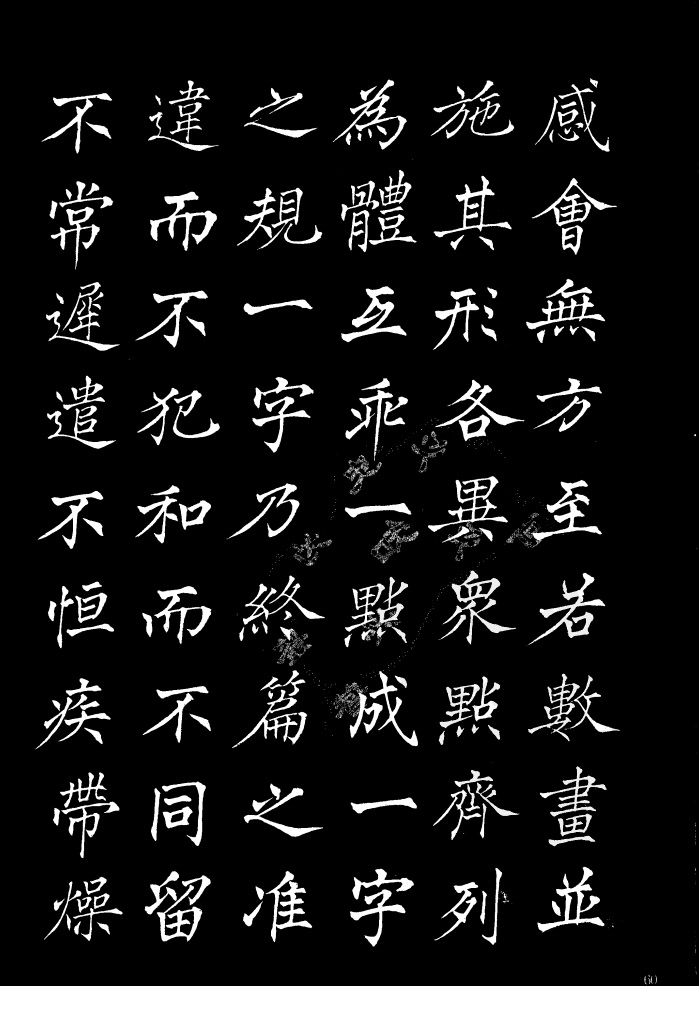 感會無方至若數畫並
施其形各異眾點齊列
為體互乖一點成一字
之規一字乃終篇之准
違而不犯和而不同留
不常遲遣不恒疾帶燥
60